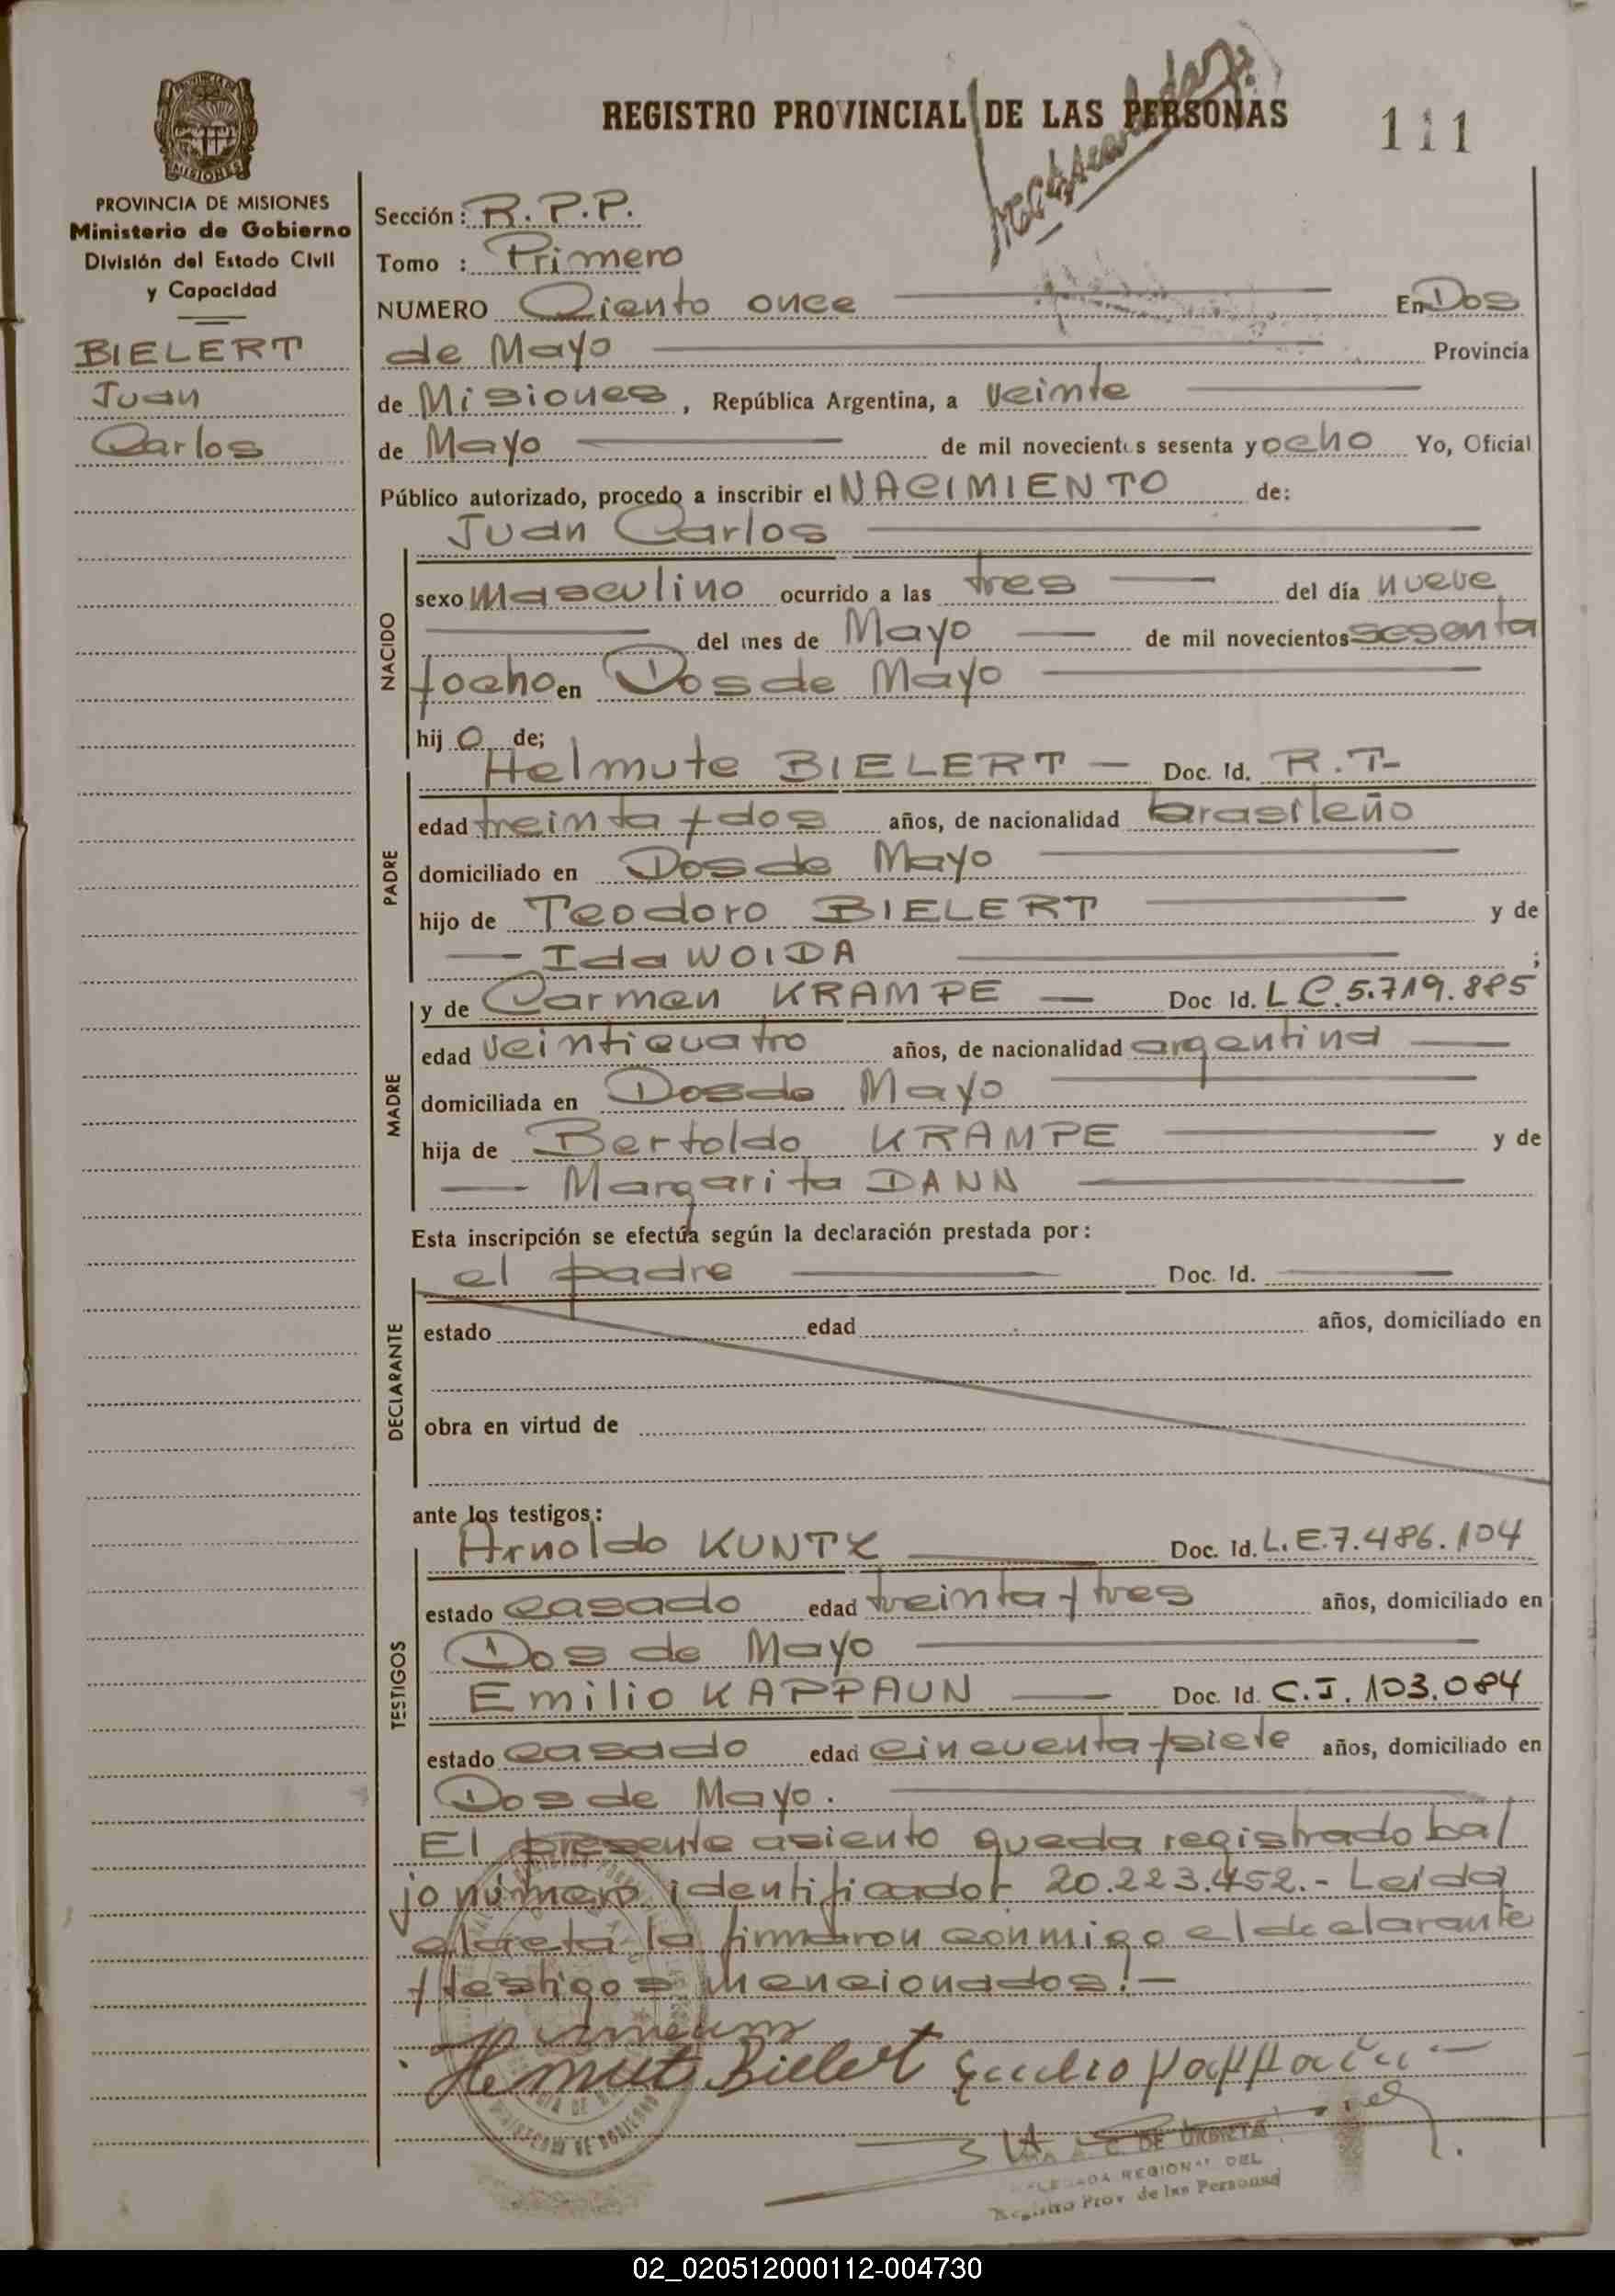 REGISTRO PROVINCIAL DE LAS PERSONAS
111
PROVINCIA DE MISIONES
Ministerio de Gobierno
División del Estado Civil
y Capacidad
BIELERT
Juan
Carlos
Sección: R.P.P.
Tomo : Primero
NUMERO Ciento once En Dos
de Mayo Provincia
de Misiones, República Argentina, a veinte
de Mayo de mil novecientos sesenta y ocho Yo, Oficial
Público autorizado, procedo a inscribir el NACIMIENTO de:
Juan Carlos
NACIDO
sexo Masculino ocurrido a las tres del día nueve
del mes de Mayo de mil novecientos sesenta
y ocho en Dos de Mayo
hij o de;
PADRE
Helmute BIELERT — Doc. Id. R.T-
edad treinta y dos años, de nacionalidad brasileño
domiciliado en Dos de Mayo
hijo de Teodoro BIELERT y de
— Ida WOIDA ;
MADRE
y de Carmen KRAMPE — Doc Id. L C. 5.719.885
edad veinticuatro años, de nacionalidad argentina
domiciliada en Dos de Mayo
hija de Bertoldo KRAMPE y de
— Margarita DANN
Esta inscripción se efectúa según la declaración prestada por:
DECLARANTE
el padre Doc. Id.
estado edad años, domiciliado en
obra en virtud de
ante los testigos:
TESTIGOS
Arnoldo KUNTZ Doc. Id. L.E.7.486.104
estado casado edad treinta y tres años, domiciliado en
Dos de Mayo
Emilio KAPPAUN — Doc. Id. C.I. 103.084
estado casado edad cincuenta y siete años, domiciliado en
Dos de Mayo.
El presente asiento queda registrado ba/
jo número identificador 20.223.452.- Leída
el acta, la firmaron conmigo el declarante
y testigos mencionados!-
Helmut Bielert Emilio Kappaun
C. DE URBIETA
REGIONAL DEL
Registro Prov de las Personas
02_020512000112-004730